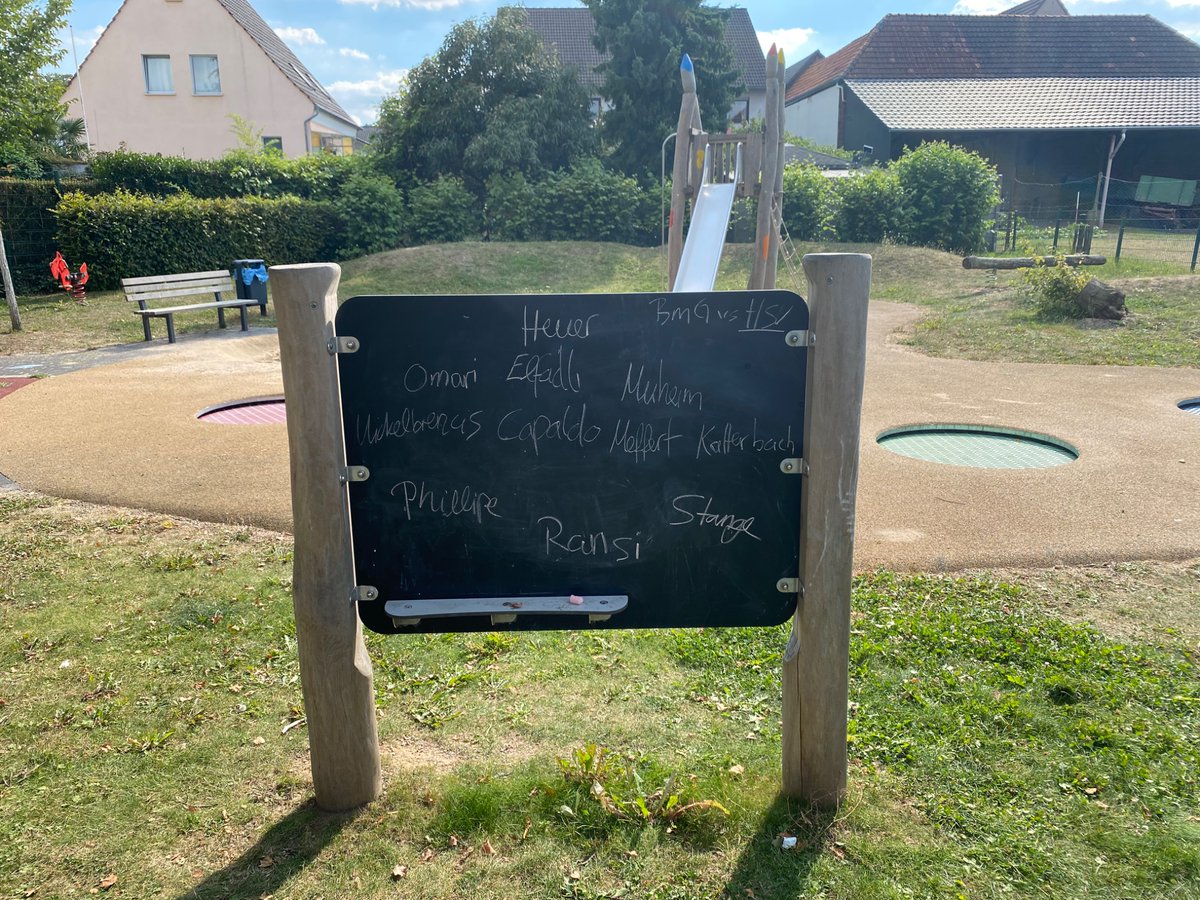 Heuer BMG vs HSV
Omari Elfadli Muheim
Mickelbrencis Capaldo Meffert Katterbach
Phillipe Stange
Ransi